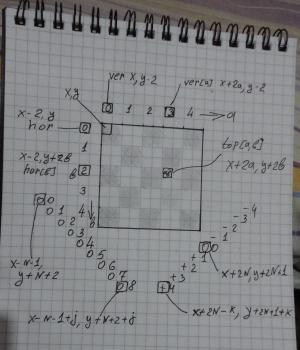 ver x, y-2
ver[a] x+2a, y-2
x,y
0 1 2 3 4 → a
x-2, y
hor
0
1
x-2, y+2b
hor[b]
b 2
3
4
top[a,b]
x+2a, y+2b
0 0
0 1
0 2
0 3
0 4
0 5
0 6
0 7
8
-4
-3
-2
-1
0
+1
+2
+3
+4
x-N-1,
y+N+2
x+2N, y+2N+1
x-N-1+j, y+N+2+j
x+2N-k, y+2N+1+k